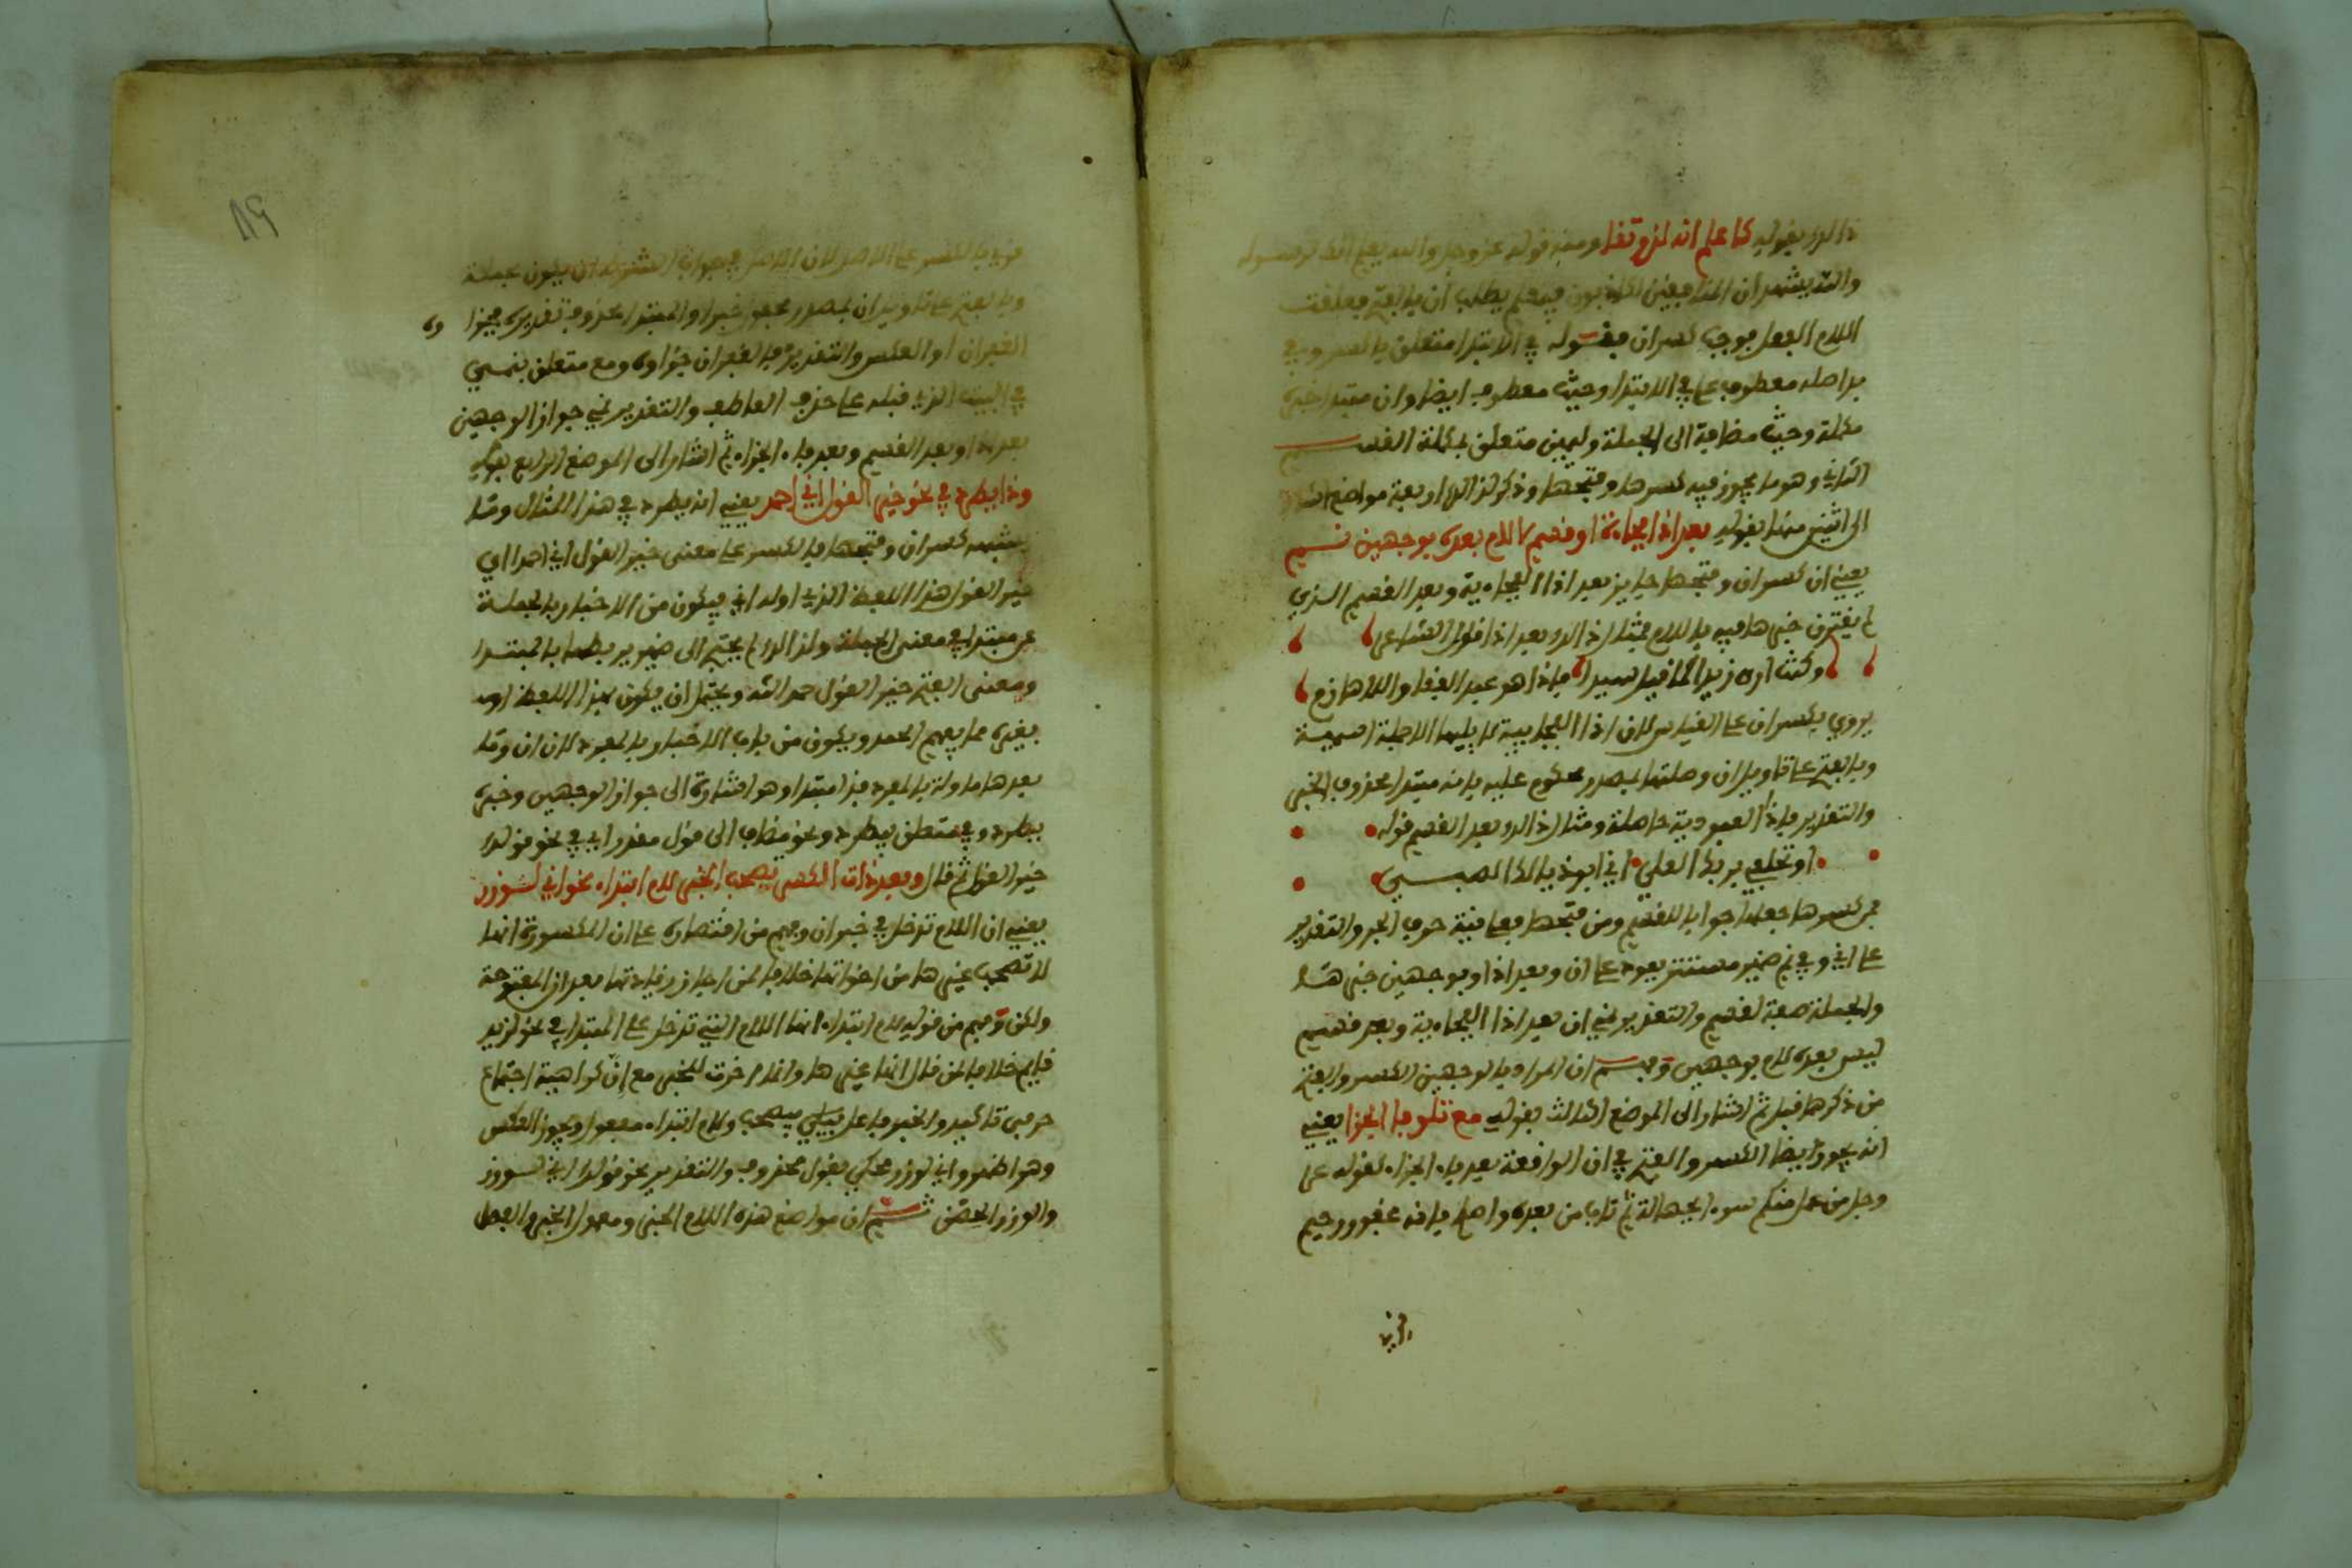 ذالك بقوله كاعلم انه لذو تقا ومنه قوله عز وجل والله يعلم انك لرسوله
والله يشهد ان المنافقين لكاذبون فيعلم يطلب ان بالفتح فعلقت
اللام الفعل فوجب كسران فقوله في الابتدا متعلق باكسر وفي
بدء صله معطوف على في الابتدا وحيث معطوف ايضا وان مبتدا خبره
مكملة وحيث مضافة الى الجملة وليمين متعلق بمكملة القسم
الثاني وهو ما يجوز فيه كسرها وفتحها وذكر لذالك اربعة مواضع اشار
الى اثنين منها بقوله بعد اذا فجاءة او قسم لا لام بعده بوجهين نسم
يعني ان كسران وفتحها جايز بعد اذا الفجاءية وبعد القسم الذي
لم يقترن خبرها فيه باللام فمثال ذالك بعد اذا قول الشاعر
وكنت ارى زيدا كما قيل سيدا فاذا هو عبد القفا واللهازم
يروى بكسران على القياس لان اذا الفجاءيية لا يليها الا جملة اسمية
وبالفتح على تاويل ان وصلتها بمصدر محكوم عليه بانه مبتدا محذوف الخبر
والتقدير فاذا العبودية حاصلة ومثال ذالك بعد القسم قوله
او تحلفي بربك العلي اني ابو ذيالك الصبي
فمن كسرها جعلها جوابا للقسم ومن فتحها فعلى نية حرف الجر والتقدير
على اني وفي نم ضمير مستتر يعود على ان وبعد اذا وبوجهين خبر هـا
والجملة صفة لقسم والتقدير نمي ان بعد اذا الفجاءية وبعد قسم
ليس بعده لام بوجهين وفهم ان المراد بالوجهين الكسر والفتح
من ذكرهما قبل ثم اشار الى الموضع الثالث بقوله مع تلو فا الجزا يعني
انه يجوز ايضا الكسر والفتح في ان الواقعة بعد فاء الجزاء كقوله عز
وجل من عمل منكم سوءا بجهالة ثم تاب من بعده واصلح فانه غفور رحيم
قرئ
قرئ بالكسر على الاصل لان الاصل في جواب الشرط ان يكون جملة
وبالفتح على تاويل ان بمصدر مجعول خبرا والمبتدا محذوف تقديره فجزاوه
الغفران او العكس والتقدير فالغفران جزاوه ومع متعلق بنمي
في البيت الذي قبله على حذف العاطف والتقدير نمي جواز الوجهين
بعد اذا وبعد القسم وبعد فاء الجزاء ثم اشار الى الموضع الرابع بقوله
وذا يطرد في نحو خير القول اني احمد يعني انه يطرد في هذا المثال وما
يشبهه كسران وفتحها فالكسر على معنى خير القول اني احمد اي
خير القول هذا اللفظ الذي اوله اني فيكون من الاخبار بالجملة
عن مبتدا في معنى الجملة ولذالك لم يحتج الى ضمير يربطها بالمبتدا
ومعنى الفتح خير القول حمد الله ويحتمل ان يكون بهذا اللفظ او
بغيره مما يفهم الحمد ويكون من باب الاخبار بالمفرد لان ان وما
بعدها ماولة بالمفرد فذا مبتدا وهو اشارة الى جواز الوجهين وخبره
يطرد وفي متعلق بيطرد ونحو مضاف الى قول مقدر اي في نحو قولك
خير القول ثم قال وبعد ذات الكسر يصحب الخبر لام ابتداء نحو اني لوزر
يعني ان اللام تدخل في خبر ان وفهم من اقتصاره على ان المكسورة انها
لا تصحب غيرها من اخواتها خلافا لمن اجاز زيادتها بعد ان المفتوحة
ولكن وفهم من قوله لام ابتداء انها اللام التي تدخل على المبتدا في نحو لزيد
قايم خلافا لمن قال انها غيرها وانما اخرت للخبر مع ان كراهية اجتماع
حرفي تاكيد والخبر فاعل بيصحب ولام ابتداء مفعول ويجوز العكس
وهو اظهر واني لوزر محكي بقول محذوف والتقدير نحو قولك اني لوزر
والوزر الحصن ثم ان مواضع هذه اللام الخبر ومعمول الخبر والفصل